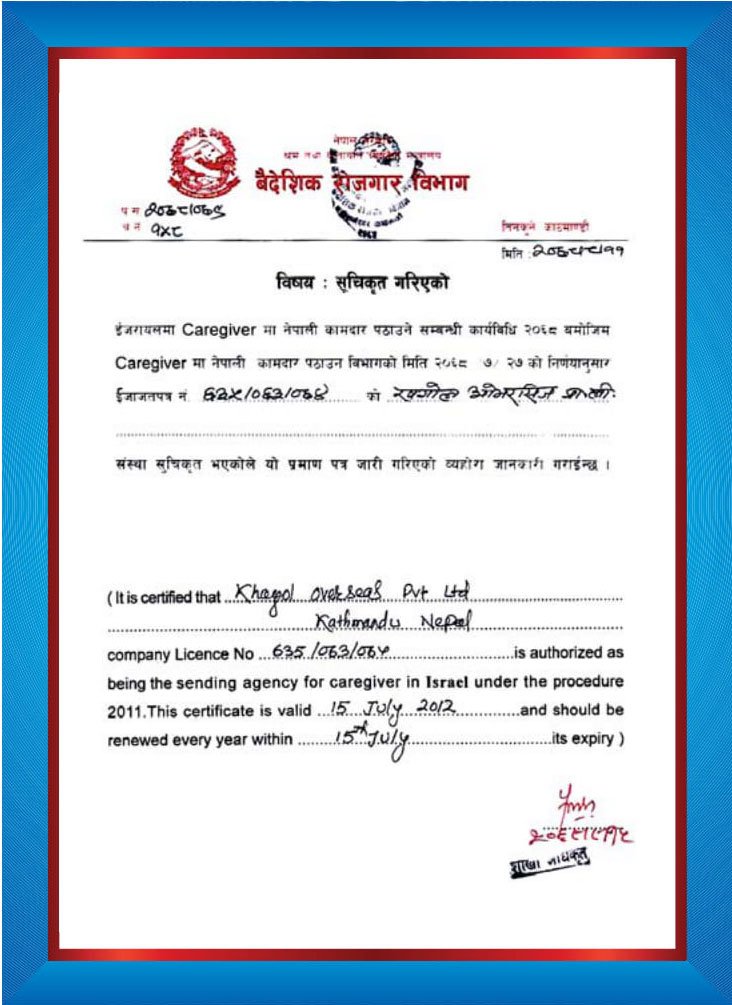 नेपाल
श्रम तथा
बैदेशिक रोजगार विभाग
प स २०६८/०६९
च नं
तिनकुने काठमाण्डौ
मिति :
विषय : सूचिकृत गरिएको
ईजरायलमा Caregiver मा नेपाली कामदार पठाउने सम्बन्धी कार्यबिधि २०६८ बमोजिम
Caregiver मा नेपाली कामदार पठाउन बिभागको मिति २०६८ ७/ २७ को निर्णयानुसार
ईजाजतपत्र नं. /०६३/०६४ को खगोल ओभरसिज प्रा.ली.
संस्था सुचिकृत भएकोले यो प्रमाण पत्र जारी गरिएको व्यहोरा जानकारी गराईन्छ ।
( It is certified that Khagol overseas Pvt Ltd
Kathmandu Nepal
company Licence No 635/063/064 is authorized as
being the sending agency for caregiver in Israel under the procedure
2011.This certificate is valid 15 July 2012 and should be
renewed every year within 15th July its expiry )
शाखा अधिकृत